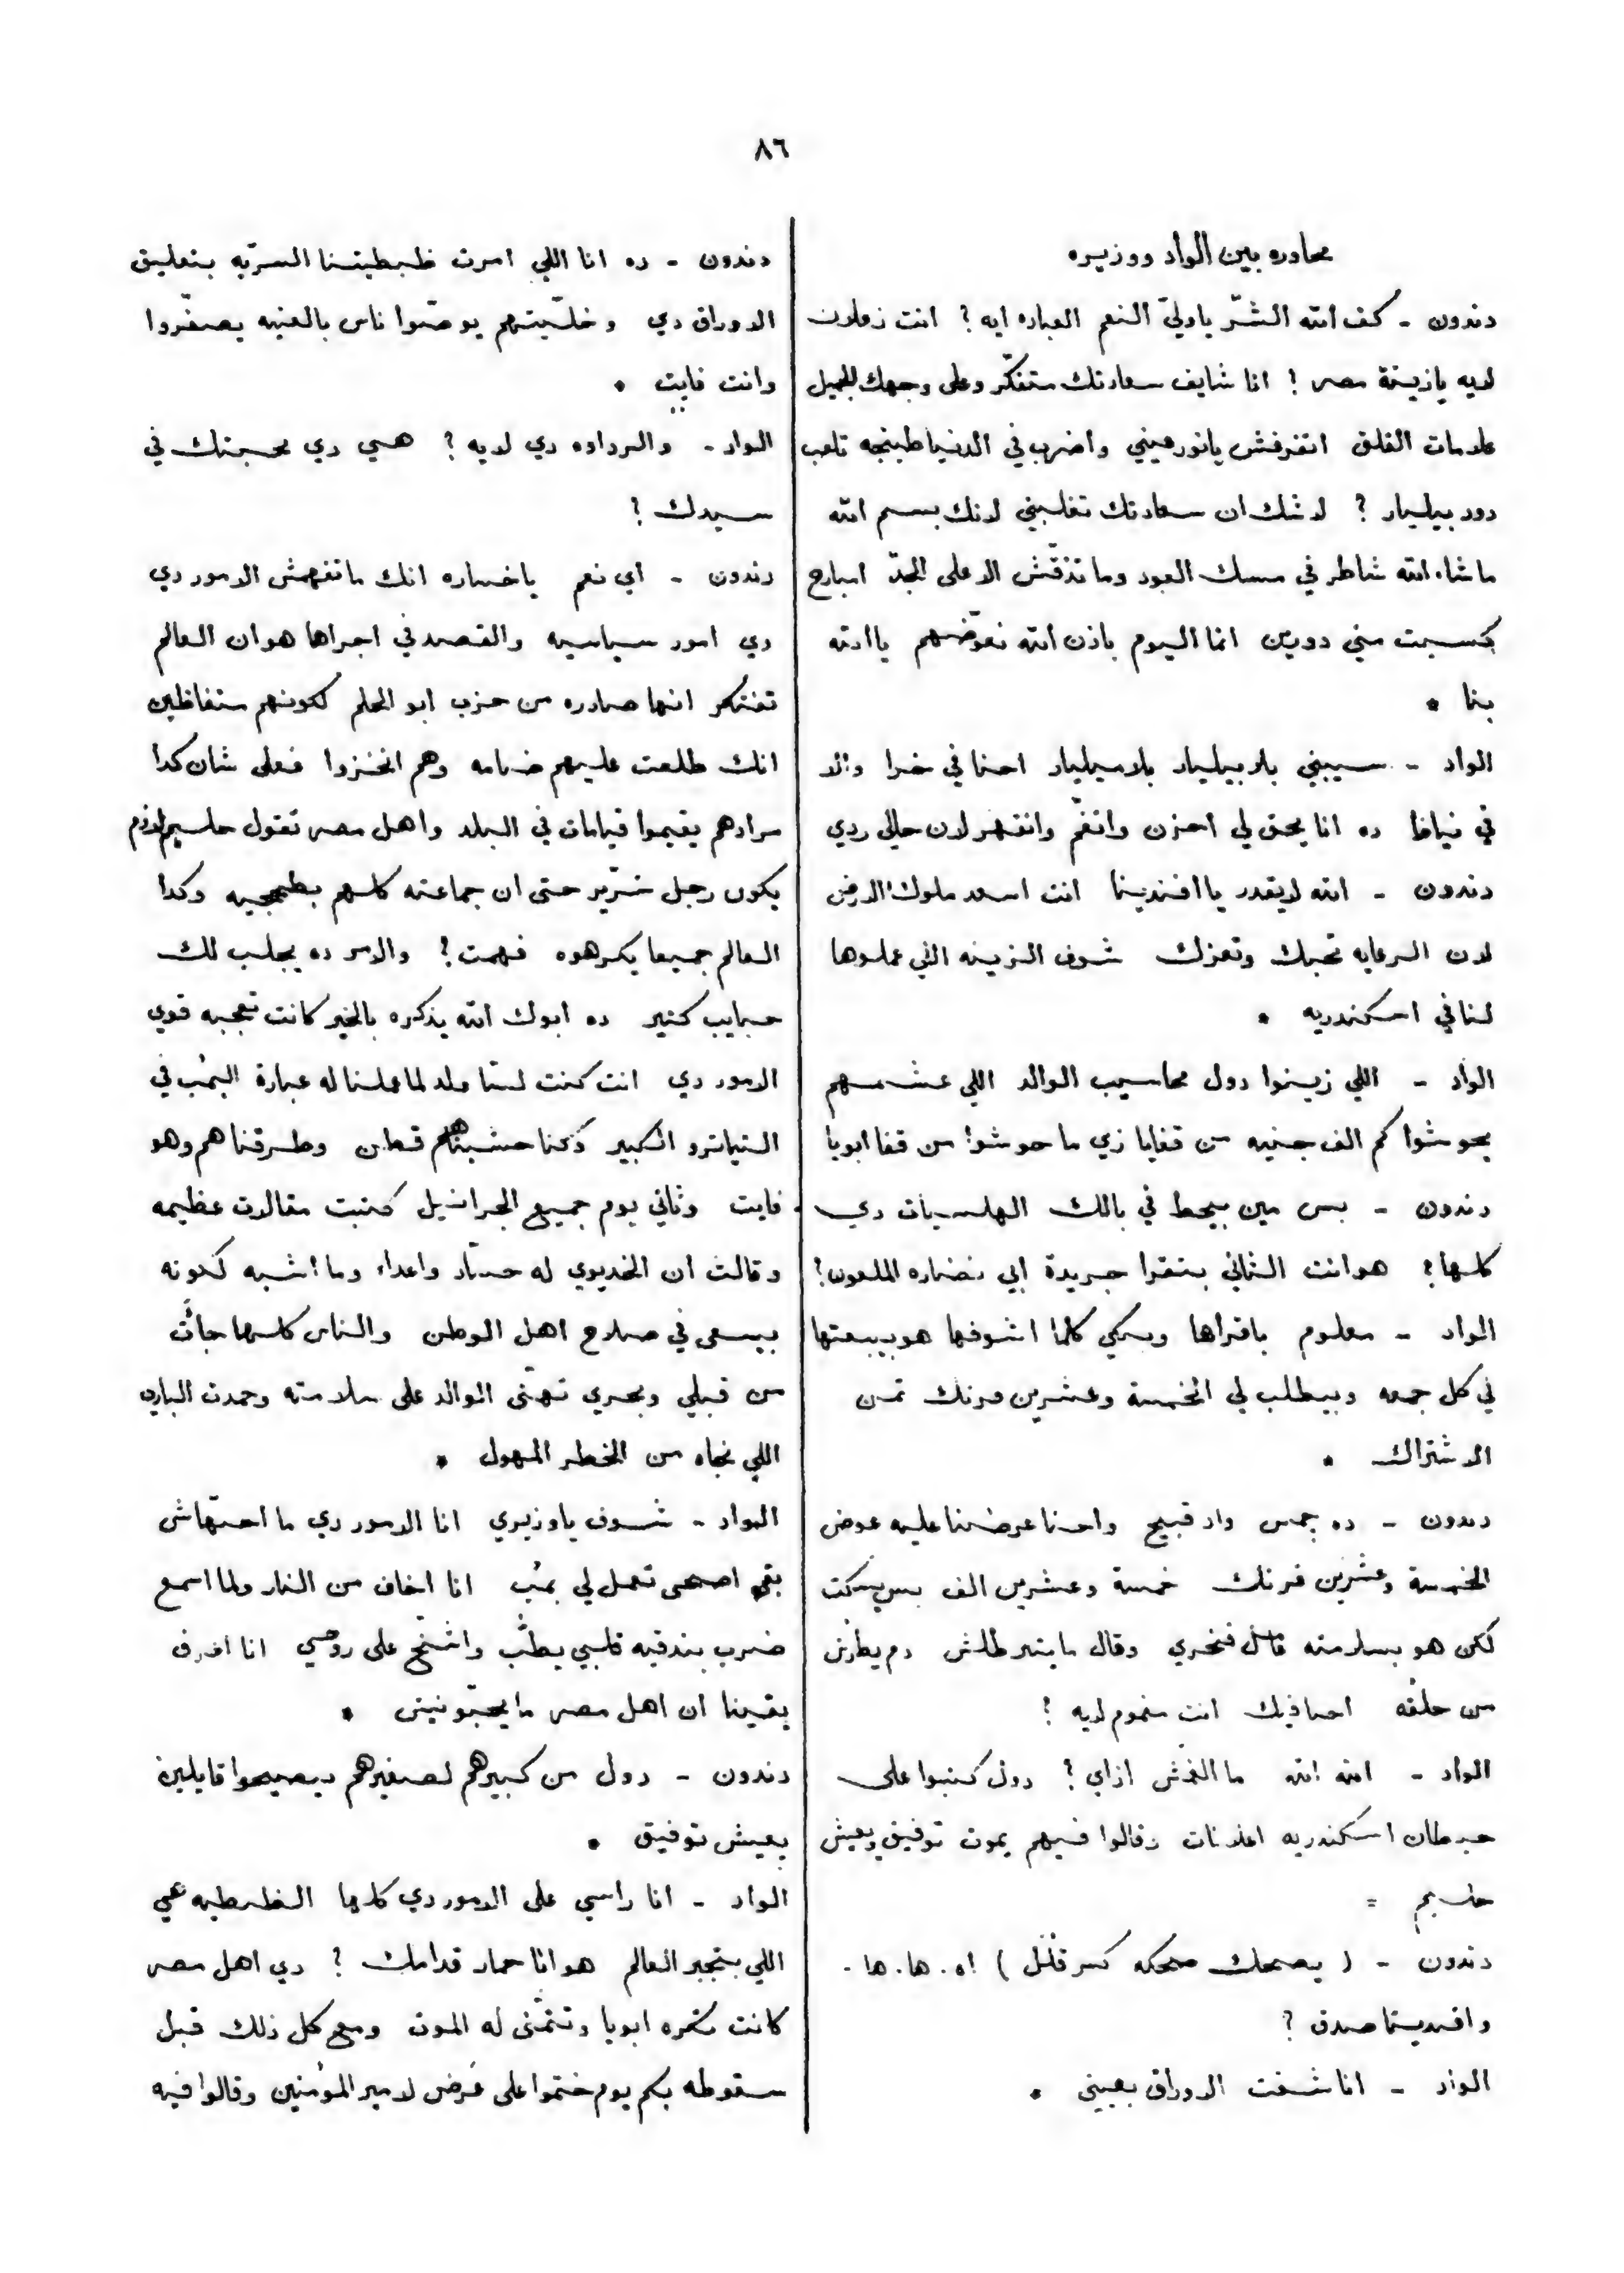 ٨٦
محاوره بين الواد ووزيره
دندون - كف الله الشرّ ياوليّ النعم العباره ايه ؟ انت زعلان
لايه يازينة مصر ! انا شايف سعادتك متفكّر وعلى وجهك الجميل
علامات القلق اتفرفش يانور عيني واضرب في الدنيا طبنجه تلعب
دور بيليار ؟ لا شك ان سعادتك تغلبني لانك بسم الله
ما شاء الله شاطر في مسك العود وما تذقّش الا على الجدّ امبارح
كسبت مني دورين انما اليوم باذن الله نعوّضهم ياالله
بنا *
الواد - سيبني بلا بيليار بلا ميليار احنا في خرا والا
في نيافا ده انا يحق لي احزن وانغمّ وانقهر لان حالي ردي
دندون - الله لايقدر ياافندينا انت اسعد ملوك الارض
لان الرعايه تحبك وتعزك شوف الزينه اللي عملوها
لنا في اسكندريه *
الواد - اللي زينوا دول محاسيب الوالد اللي عشمهم
يحوشوا كم الف جنيه من قفايا زي ما حوشوا من قفا ابويا
دندون - بس مين بيحط في بالك الهلسيات دي
كلها ؟ هو انت الثاني بتقرا جريدة ابي نضاره الملعون ؟
الواد - معلوم باقراها وببكي كلما اشوفها هو بيبعتها
لي كل جمعه وبيطلب لي الخمسة وعشرين فرنك تمن
الاشتراك *
دندون - ده جمس واد قبيح واحنا عرضنا عليه عوض
الخمسة وعشرين فرنك خمسة وعشرين الف بس يسكت
لكن هو بسلامته فنجري وقال ما يتبرطلش
من حلقه انت مغموم لايه ؟
الواد - الله الله ما انغمش ازاي ؟ دول كتبوا على
حيطان اسكندريه اعلانات وقالوا فيهم يموت توفيق ويعيش
حليم =
دندون - ( يضحك ضحكه كسر قلل ) اه . ها . ها .
وافنديينا صدق ؟
الواد - انا شفت الاوراق بعيني *
دندون - ده انا اللي امرت ظبطيتنا السرّيه بتعليق
الاوراق دي وخلّيتهم يوصّوا ناس بالعنيه يصفّروا
وانت فايت *
الواد - والرداوه دي لايه ؟ هي دي محبتك في
سيدك ؟
دندون - اي نعم ياخساره انك ماتفهمش الامور دي
دي امور سياسيه والقصد في اجراها هو ان العالم
تفتكر انها صادره من حزب ابو الحلم لكونهم متغاظين
انك طلعت عليهم ضامه وهم انخزوا فعلى شان كدا
مرادهم يقيموا قيامات في البلد واهل مصر تقول حليم لازم
يكون رجل شرّير حتى ان جماعته كلهم بطمجيه وكدا
العالم جميعا يكرهوه فهمت ؟ والامر ده يجلب لك
حبايب كتير ده ابوك الله يذكره بالخير كانت تعجبه قوي
الامور دي انت كنت لسّا ولد لما عملنا له عبارة البُمْب في
التياترو الكبير كنا حشيناهم قطن وطرقناهم وهو
فايت وثاني يوم جميع الجرانيل كتبت مقالات عظيمه
وقالت ان الخديوي له حسّاد واعداء وما اشبه لكونه
بيسعى في صلاح اهل الوطن والناس كلها جات
من قبلي وبحري تهنّى الوالد على سلامته وحمدت الباري
اللي نجاه من الخطر المهول *
الواد - شوف ياوزيري انا الامور دي ما احبّهاش
بقى اصحى تعمل لي بمْب انا اخاف من النار ولما اسمع
ضرب بندقيه قلبي يطبّ واشخّ على روحي انا اعرف
يقينا ان اهل مصر ما يحبّونيش *
دندون - دول من كبيرهم لصغيرهم بيصيحوا قايلين
يعيش توفيق *
الواد - انا راسي على الامور دي كلها الظبطيه هي
اللي بتجبر العالم هو انا حمار قدامك ؟ دي اهل مصر
كانت تكره ابويا وتتمنّى له الموت ومع كل ذلك قبل
سقوطه بكم يوم ختموا على عَرض لامير المؤمنين وقالوا فيه